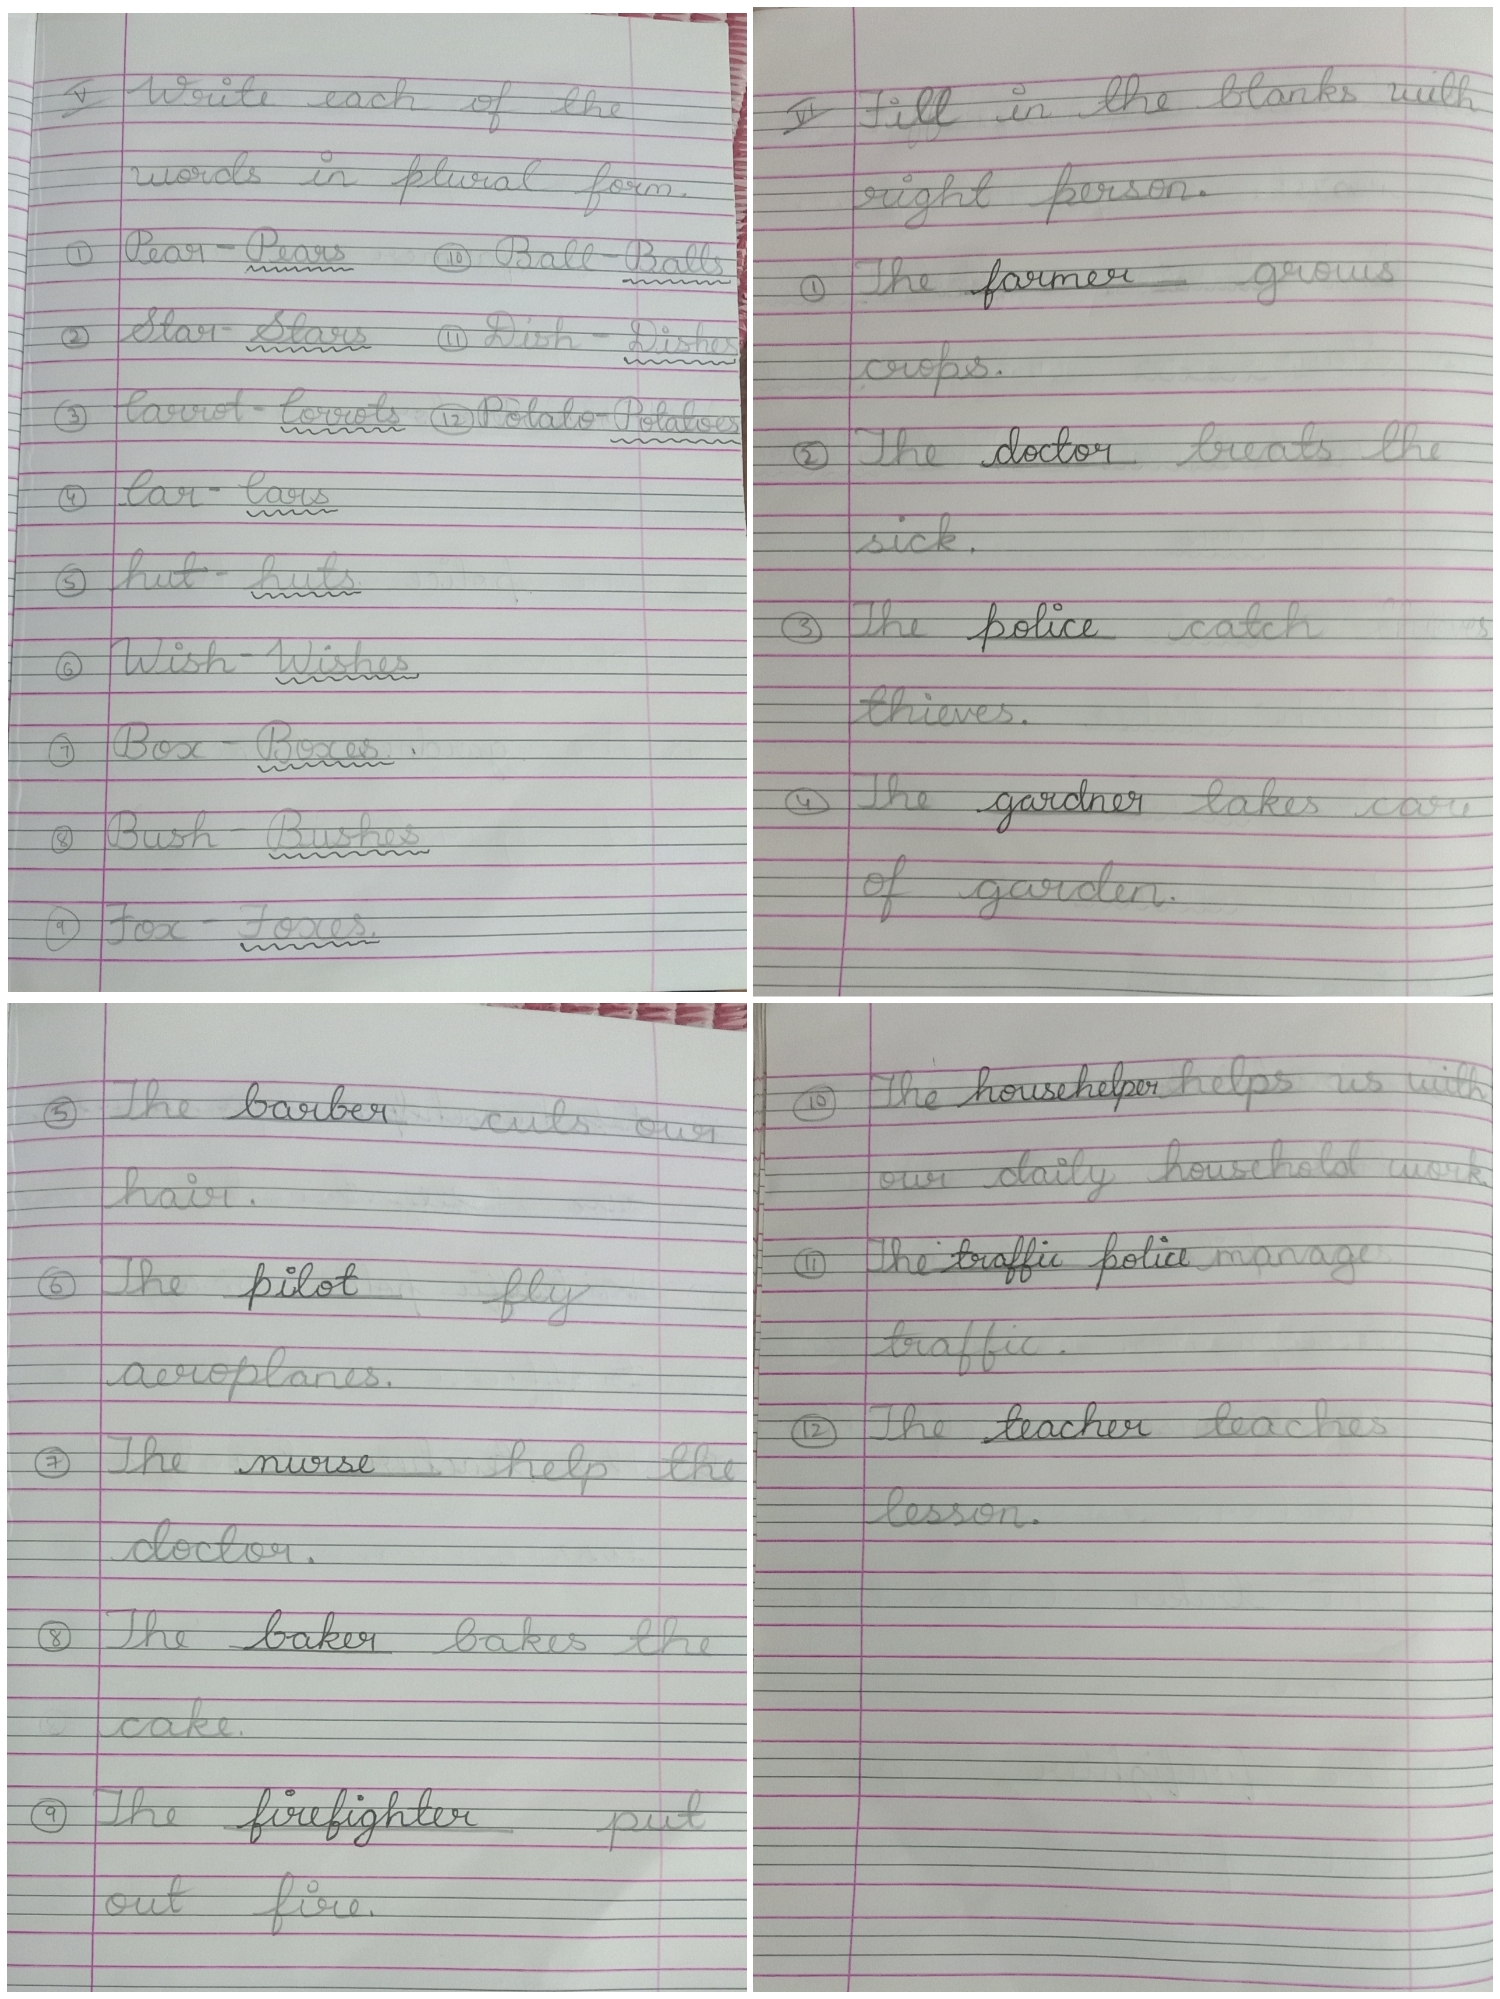 V Write each of the
words in plural form.
① Pear - Pears ⑩ Ball - Balls
② Star - Stars ⑪ Dish - Dishes
③ Carrot - Corrots ⑫ Potato - Potatoes
④ Car - Cars
⑤ hut - huts
⑥ Wish - Wishes
⑦ Box - Boxes.
⑧ Bush - Bushes
⑨ Fox - Foxes.
VI Fill in the blanks with
right person.
① The farmer grows
crops.
② The doctor treats the
sick.
③ The police catch
thieves.
④ The gardner takes care
of garden.
⑤ The barber cuts our
hair.
⑥ The pilot fly
aeroplanes.
⑦ The nurse help the
doctor.
⑧ The baker bakes the
cake.
⑨ The firefighter put
out fire.
⑩ The househelper helps us with
our daily household work
⑪ The traffic police manage
traffic.
⑫ The teacher teaches
lesson.